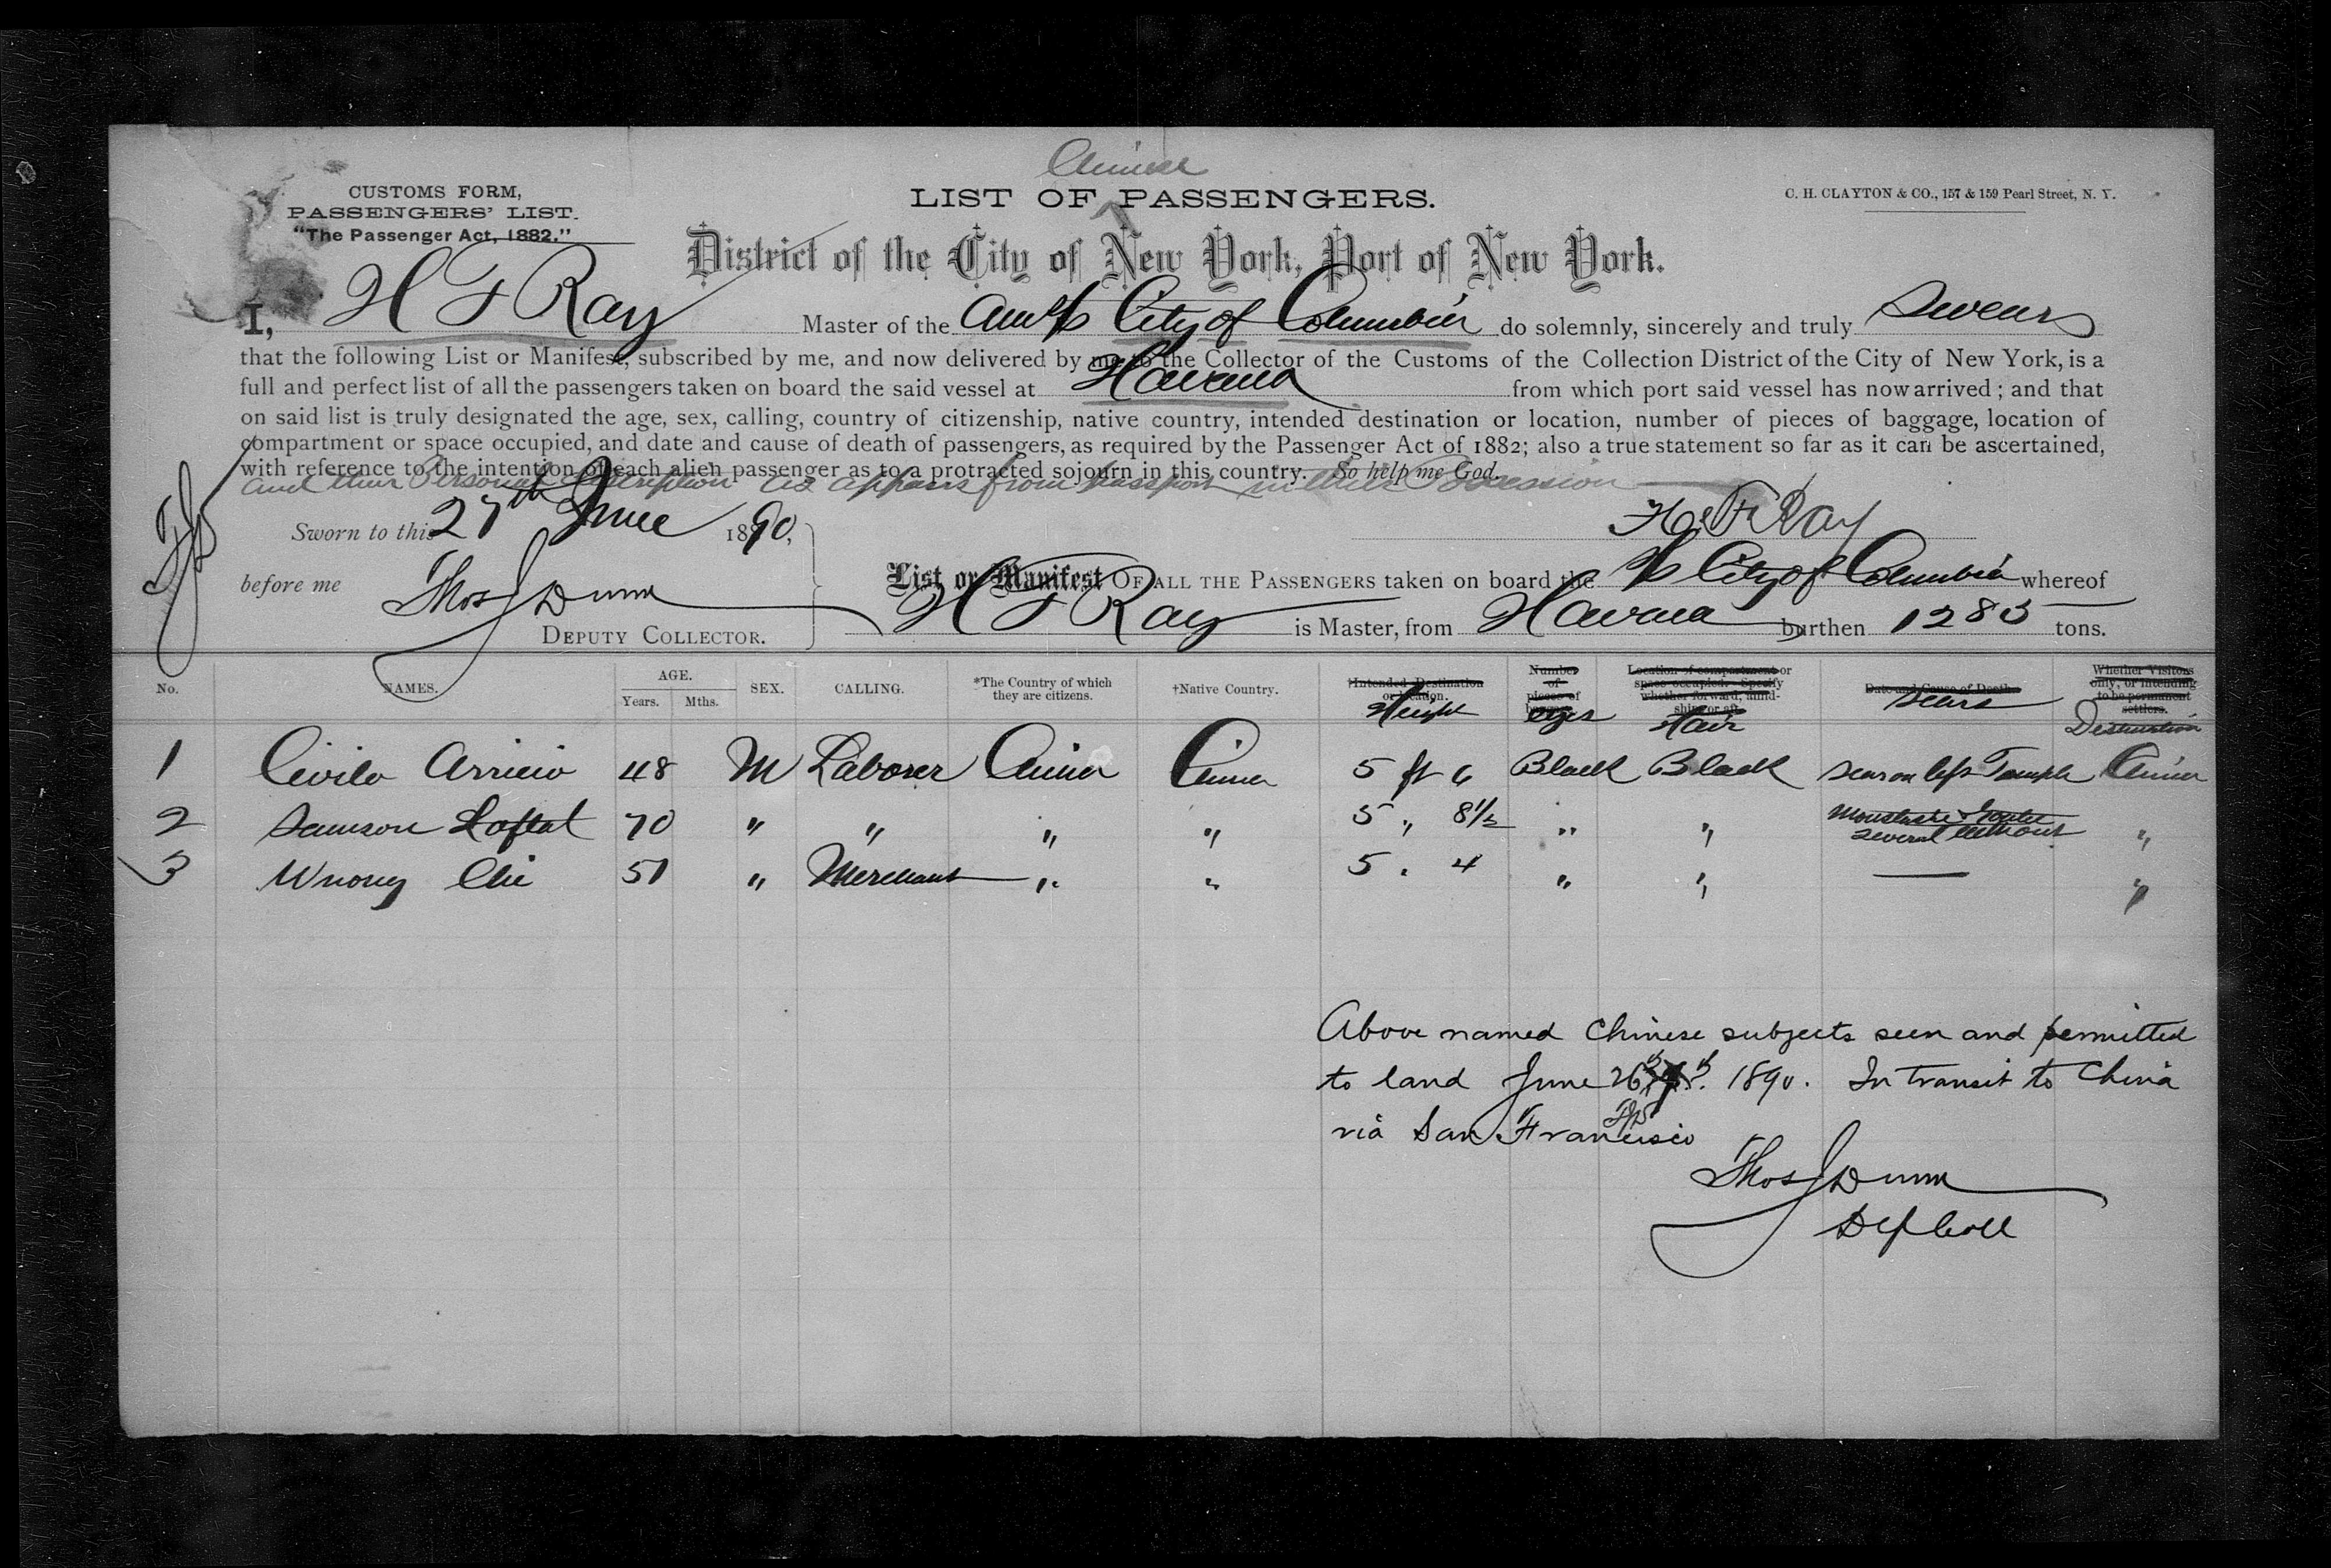 Chinese
CUSTOMS FORM,
PASSENGERS' LIST.
"The Passenger Act, 1882."
LIST OF PASSENGERS.
C. H. CLAYTON & CO., 157 & 159 Pearl Street, N. Y.
District of the City of New York, Port of New York.
I, H F Ray Master of the City of Columbia do solemnly, sincerely and truly Swear
that the following List or Manifest, subscribed by me, and now delivered by me to the Collector of the Customs of the Collection District of the City of New York, is a
full and perfect list of all the passengers taken on board the said vessel at Havana from which port said vessel has now arrived; and that
on said list is truly designated the age, sex, calling, country of citizenship, native country, intended destination or location, number of pieces of baggage, location of
compartment or space occupied, and date and cause of death of passengers, as required by the Passenger Act of 1882; also a true statement so far as it can be ascertained,
with reference to the intention of each alien passenger as to a protracted sojourn in this country. So help me God.
and their Personal description as appears from passport in their Possession
Sworn to this 27th June 1890,
H. F. Ray
before me Thos J Dunn
DEPUTY COLLECTOR.
List or Manifest OF ALL THE PASSENGERS taken on board the City of Columbia whereof
H F Ray is Master, from Havana burthen 1283 tons.
No. NAMES. AGE. Years. Mths. SEX. CALLING. *The Country of which they are citizens. †Native Country. Intended Destination or location. Height Number of pieces of eyes Location of compartment or space occupied. Specify whether forward, amidships or aft. Hair Date and Cause of Death. Scars Whether Visitors only, or intending to be permanent settlers. Destination
1 Civilo Arricio 48 M Laborer China China 5 ft 6 Black Black Scar on left Temple China
2 Samson 70 " " " " 5 " 8½ " " Moustache & Goatee several " 
3 Wuong Chi 51 " Merchant " " 5 . 4 " " — "
Above named Chinese subjects seen and permitted
to land June 26th 1890. In transit to China
via San Francisco
Thos J Dunn
Dep Coll